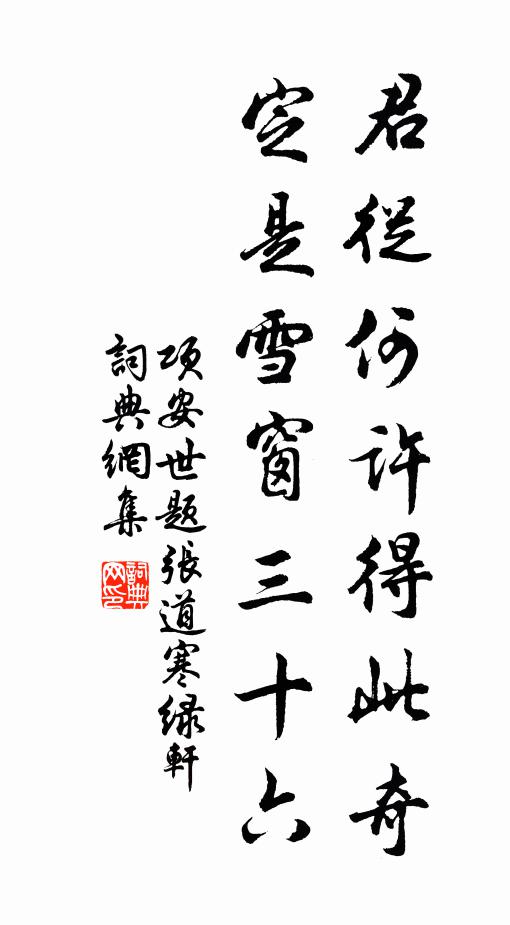 君從何許得此奇
定是雪窗三十六
项安世题張道寒绿軒
詞典網集
詞典網印